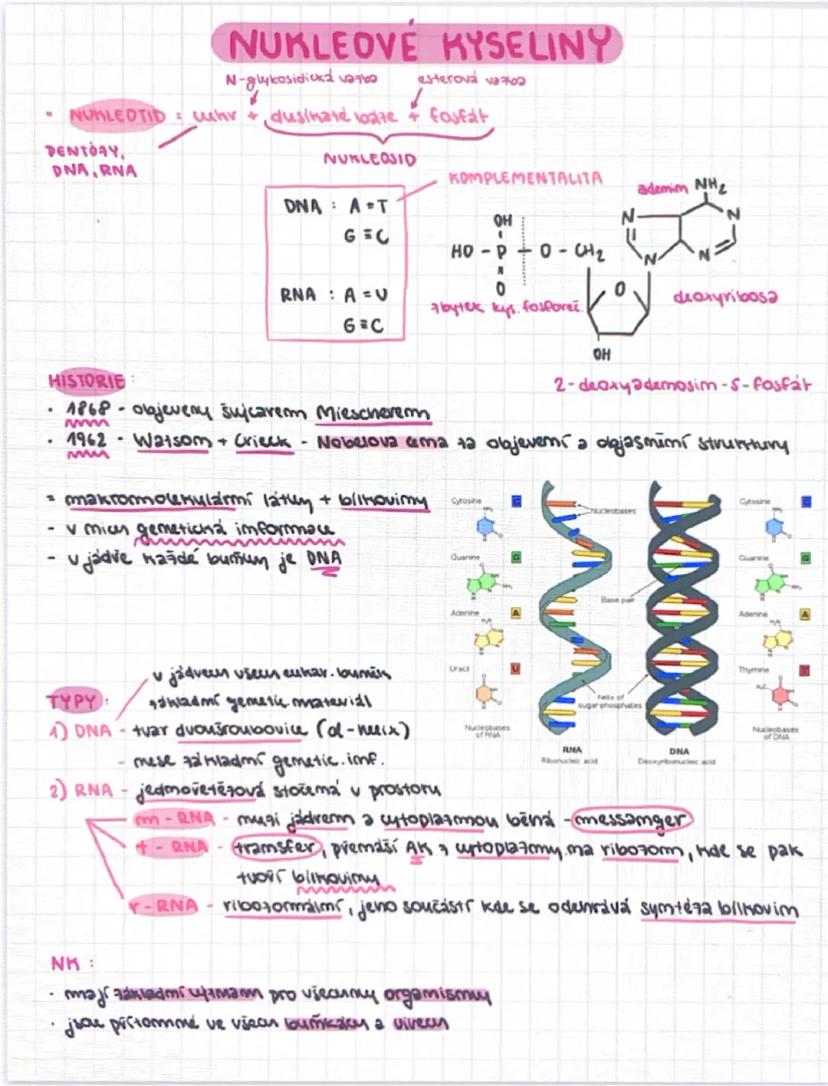 NUKLEOVÉ KYSELINY
N-glykosidická vazba esterová vazba
• NUKLEOTID = cukr + dusíkaté báze + fosfát
PENTÓZY,
DNA, RNA
NUKLEOSID
KOMPLEMENTALITA
DNA : A = T
G ≡ C
RNA : A = U
G ≡ C
adenin NH2
N N
N N
OH
HO - P - O - CH2
O
O
zbytek kys. fosforeč.
deoxyribosa
OH
2-deoxyadenosin-5-fosfát
HISTORIE:
• 1868 - objeveny švýcarem Miescherem
• 1962 - Watson + Crieck - Nobelova cena za objevení a objasnění struktury
= makromolekulární látky + bílkoviny
- v nich genetická informace
- v jádře každé buňky je DNA
Cytosine C
Guanine G
Adenine A
Uracil U
Nucleobases
of RNA
Nucleobases
Base pair
helix of
sugar-phosphates
RNA
Ribonucleic acid
DNA
Deoxyribonucleic acid
Cytosine C
Guanine G
Adenine A
Thymine T
Nucleobases
of DNA
v jádrech všech eukar. buněk
základní genetic. materiál
TYPY:
1) DNA - tvar dvoušroubovice (α-helix)
- nese základní genetic. inf.
2) RNA - jednořetězová stočená v prostoru
m - RNA - mezi jádrem a cytoplazmou běhá - messanger
t - RNA - transfer, přenáší AK z cytoplazmy na ribozom, kde se pak
tvoří bílkoviny
r - RNA - ribozomální, jeho součástí kde se odehrává syntéza bílkovin
NK :
• mají základní význam pro všechny organismy
• jsou přítomné ve všech buňkách a virech